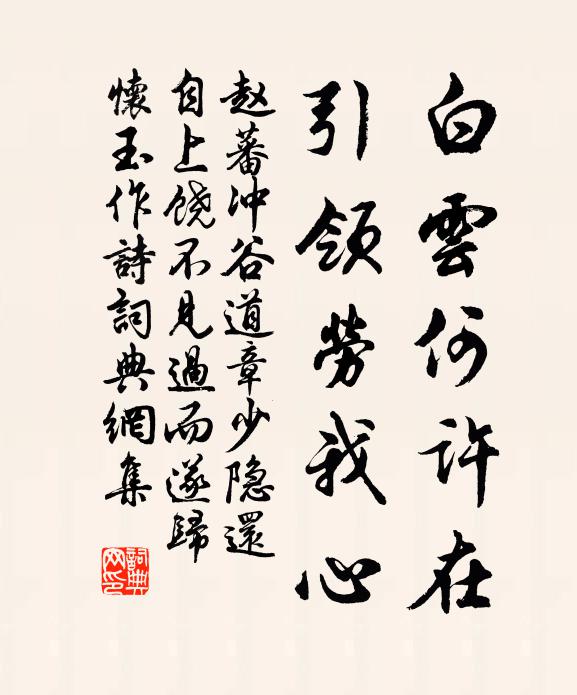 白雲何許在
引領勞我心
赵蕃冲谷道章少隐還
自上饶不見過而遂歸
懷玉作詩詞典網集
詞典网印